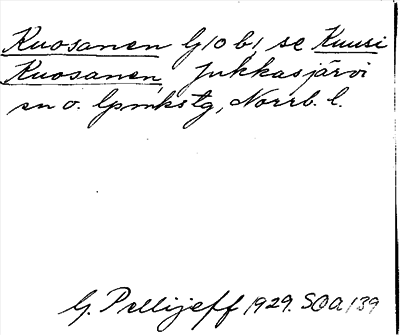 Kuosanen G10 b1 se Kuusi
Kuosanen, Jukkasjärvi
sn o. lpmkstg, Norrb. l.
G. Pellijeff 1929. SOA 139